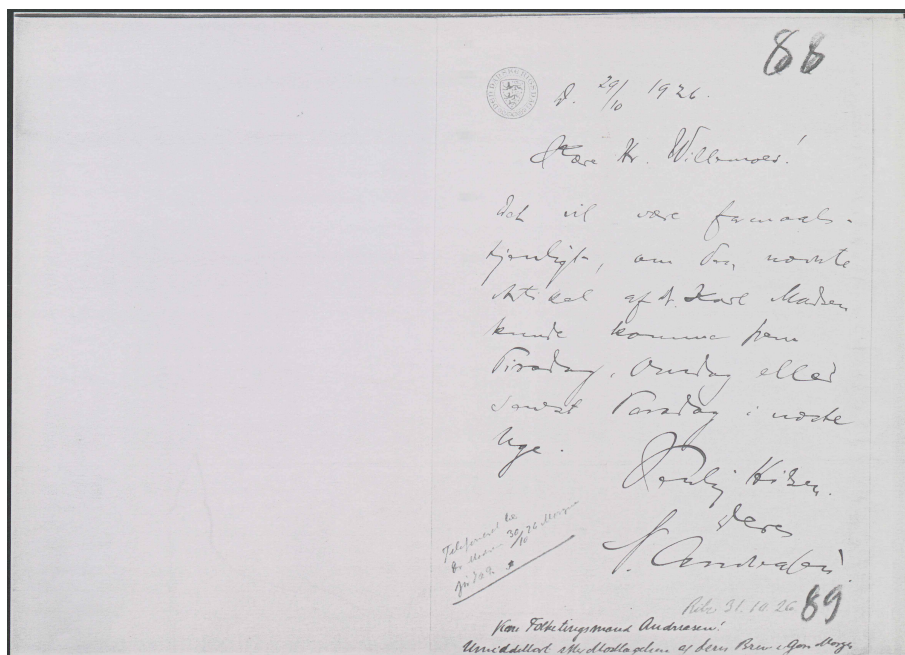 88
d. 29/10 1926.
Kære Hr. Willemoes!
Det vil være formaals-
tjenligt, om den næste
Artikel af dr. Karl Madsen
kunde komme frem
Tirsdag, Onsdag eller
senest Torsdag i næste
Uge.
Venlig Hilsen.
Deres
Andreasen
Telefoneret
30/10 26 Morgen
89
Ribe 31.10.26
Kære Folketingsmand Andreasen!
Umiddelbart efter Modtagelsen af Deres Brev i Gaar Morges